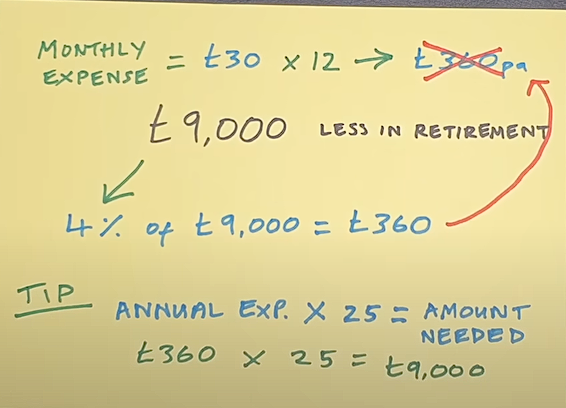 MONTHLY EXPENSE = £30 × 12 → £360pa
£9,000 LESS IN RETIREMENT
4% of £9,000 = £360
TIP
ANNUAL EXP. × 25 = AMOUNT NEEDED
£360 × 25 = £9,000